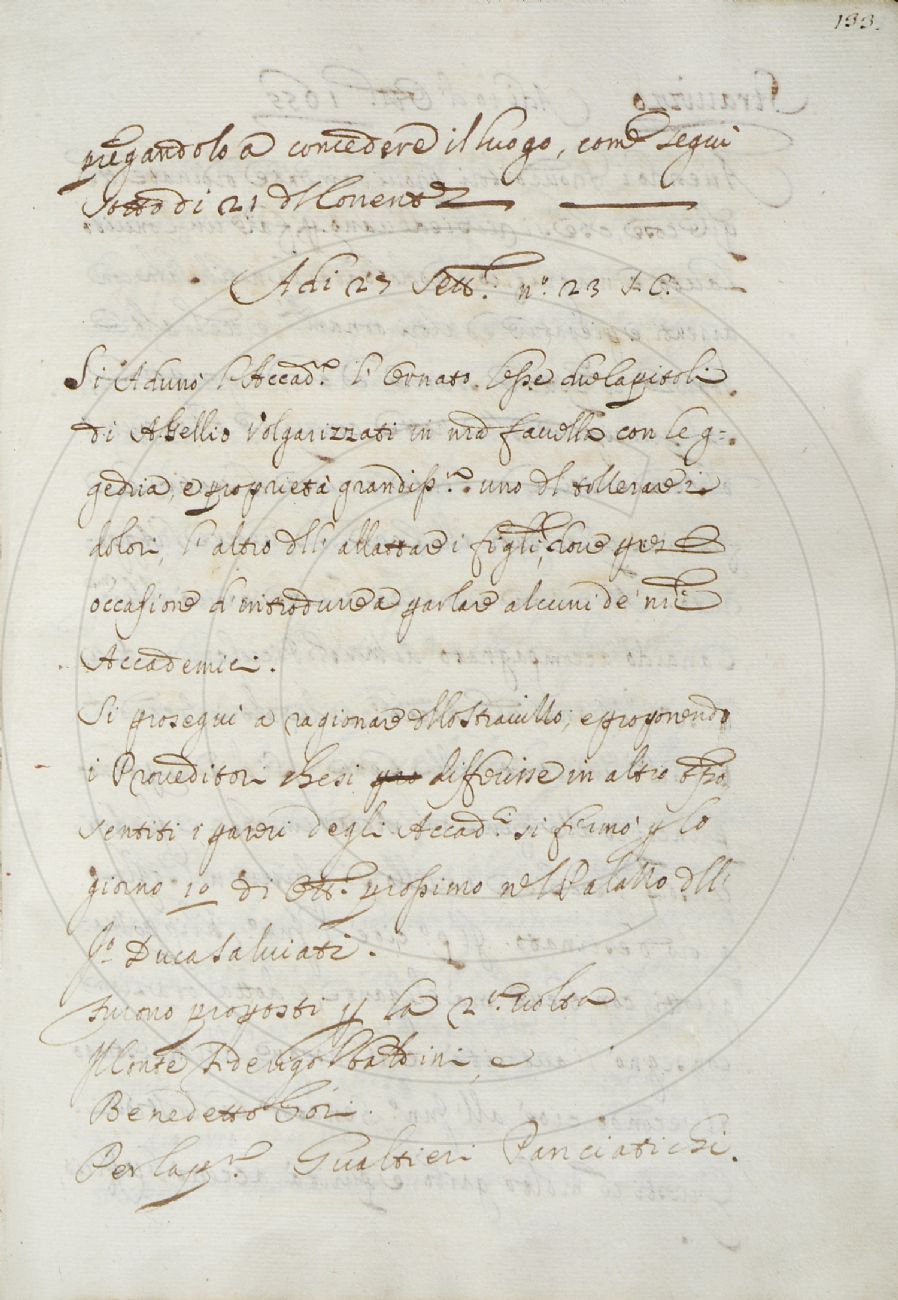 133.
pregandolo a concedere il luogo, come segui
sotto di 21 dll Novemb.
Adi 27 Sett.e n.o 23 A. C.
Si Adunò l'Accad.a l'Ornato lesse due Capitoli
di Agellio Volgarizzati in nr̃a favella con leg-
gedria, e proprietà grandiss.a uno dl tollerare i
dolori, l'altro dll' allattare i figli, dove prese
occasione d'introdurre a parlare alcuni de' nr̃i
Accademici.
Si proseguì a ragionare dllo Stravizzo, e proponendo
i Proveditori che si differisse in altro tp̃o
sentiti i pareri degli Accad.i si fermò p lo
giorno 10 di Ott.e prossimo nel Palazzo dll
S.r Duca Salviati.
Furono proposti p la 2.a volta
Il Conte Federigo Bardini, e
Benedetto Gori.
Per la p.a Gualtieri Panciatichi.